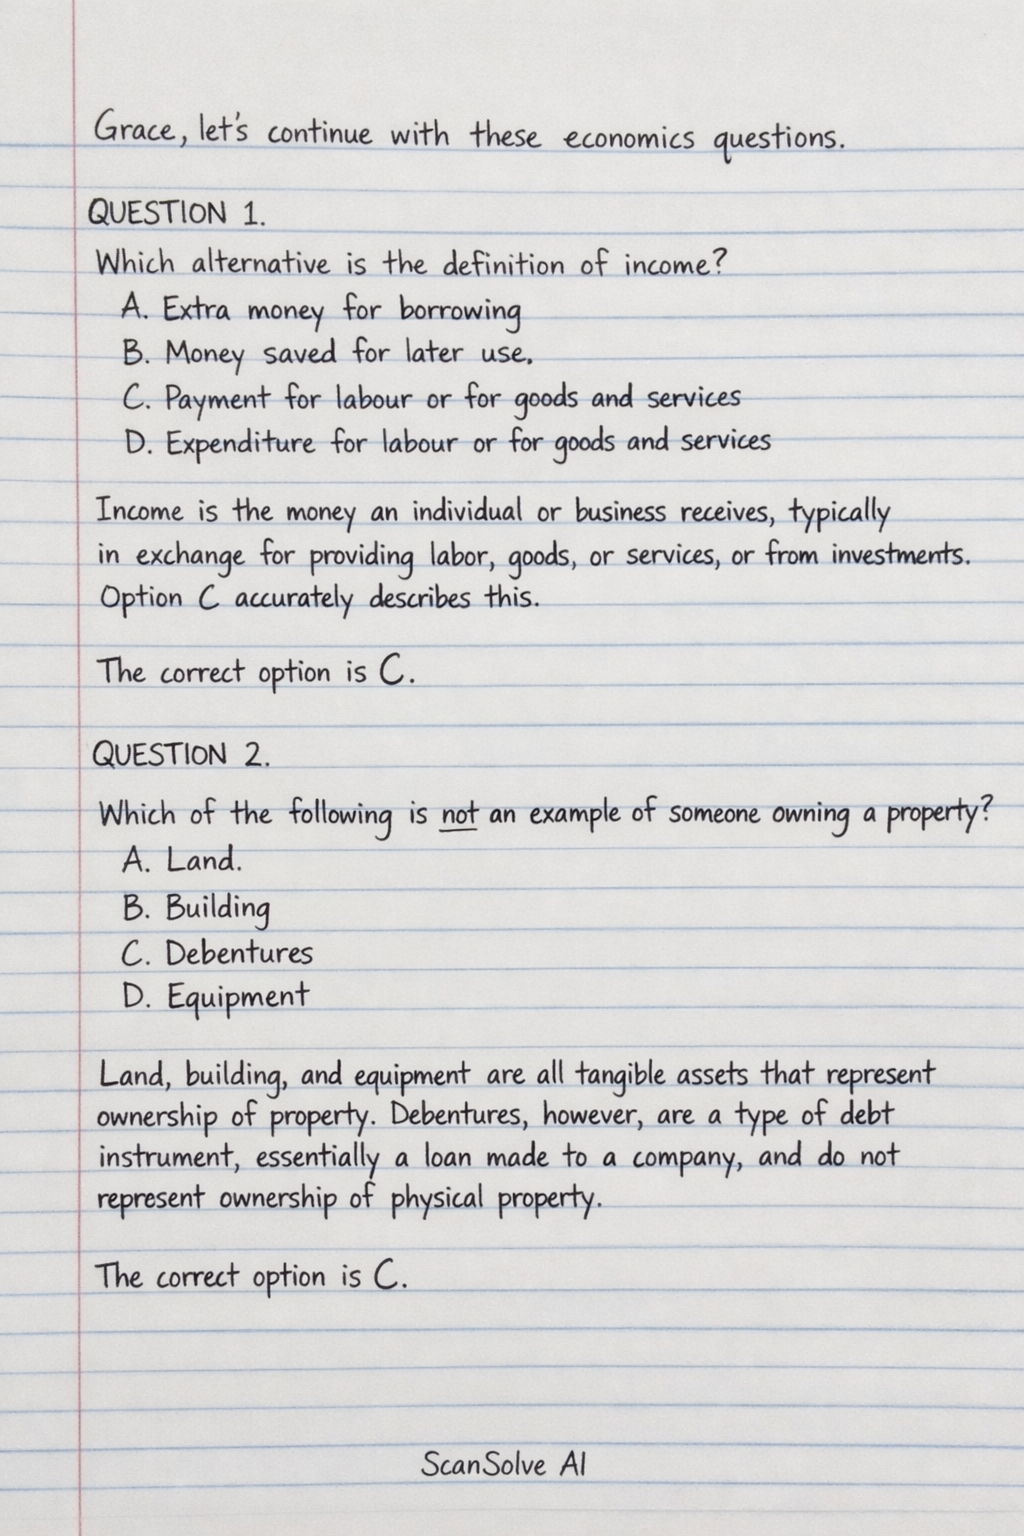 Grace, let's continue with these economics questions.
QUESTION 1.
Which alternative is the definition of income?
A. Extra money for borrowing
B. Money saved for later use.
C. Payment for labour or for goods and services
D. Expenditure for labour or for goods and services
Income is the money an individual or business receives, typically
in exchange for providing labor, goods, or services, or from investments.
Option C accurately describes this.
The correct option is C.
QUESTION 2.
Which of the following is not an example of someone owning a property?
A. Land.
B. Building
C. Debentures
D. Equipment
Land, building, and equipment are all tangible assets that represent
ownership of property. Debentures, however, are a type of debt
instrument, essentially a loan made to a company, and do not
represent ownership of physical property.
The correct option is C.
ScanSolve AI